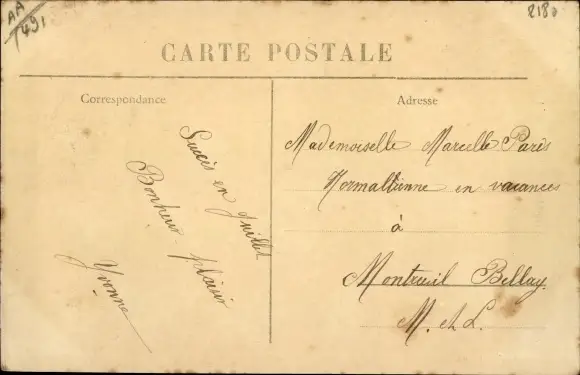 AA
1491
2180
CARTE POSTALE
Correspondance
Succès en Juillet
Bonheur - plaisir
Yvonne
Adresse
Mademoiselle Marcelle Paris
Normalienne en vacances
à
Montreuil Bellay
M. et L.